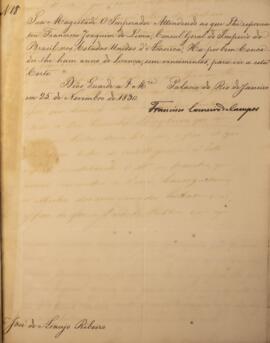 N 18
Sua Magestade O Imperador Attendendo ao que Lhe representou
Francisco Joaquim de Lima, Consul Geral do Imperio do
Brasil nos Estados Unidos d'America, Ha por bem Conce-
der-lhe hum anno de licença, sem vencimentos, para vir a esta
Corte.
Deos Guarde a V. Mce. Palacio do Rio de Janeiro
em 25 de Novembro de 1830.
Francisco Carneiro de Campos
José de Araujo Ribeiro